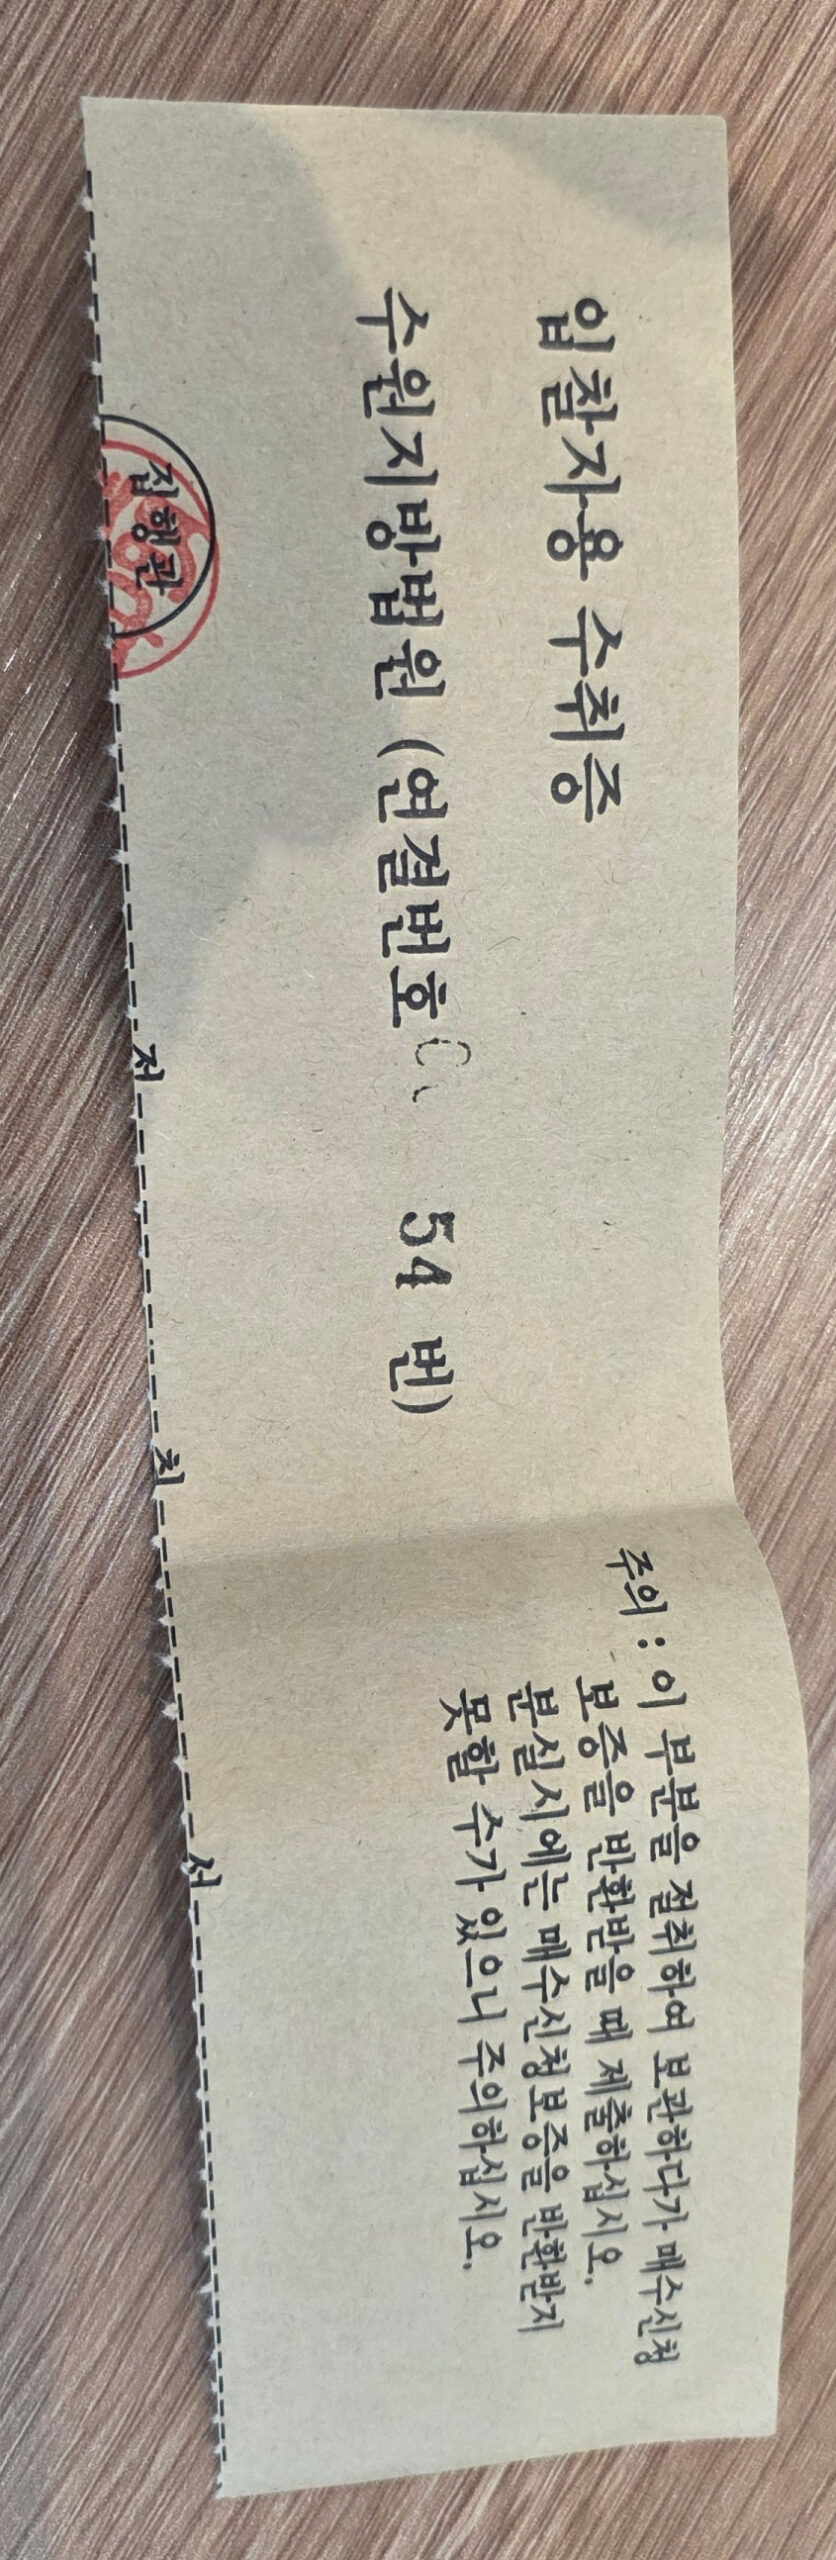 입찰자용 수취증
수원지방법원 (연결번호 54 번)
주의 : 이 부분을 절취하여 보관하다가 매수신청
보증을 반환받을 때 제출하십시오.
분실시에는 매수신청보증을 반환받지
못할 수가 있으니 주의하십시오.
집행관
저 취 선